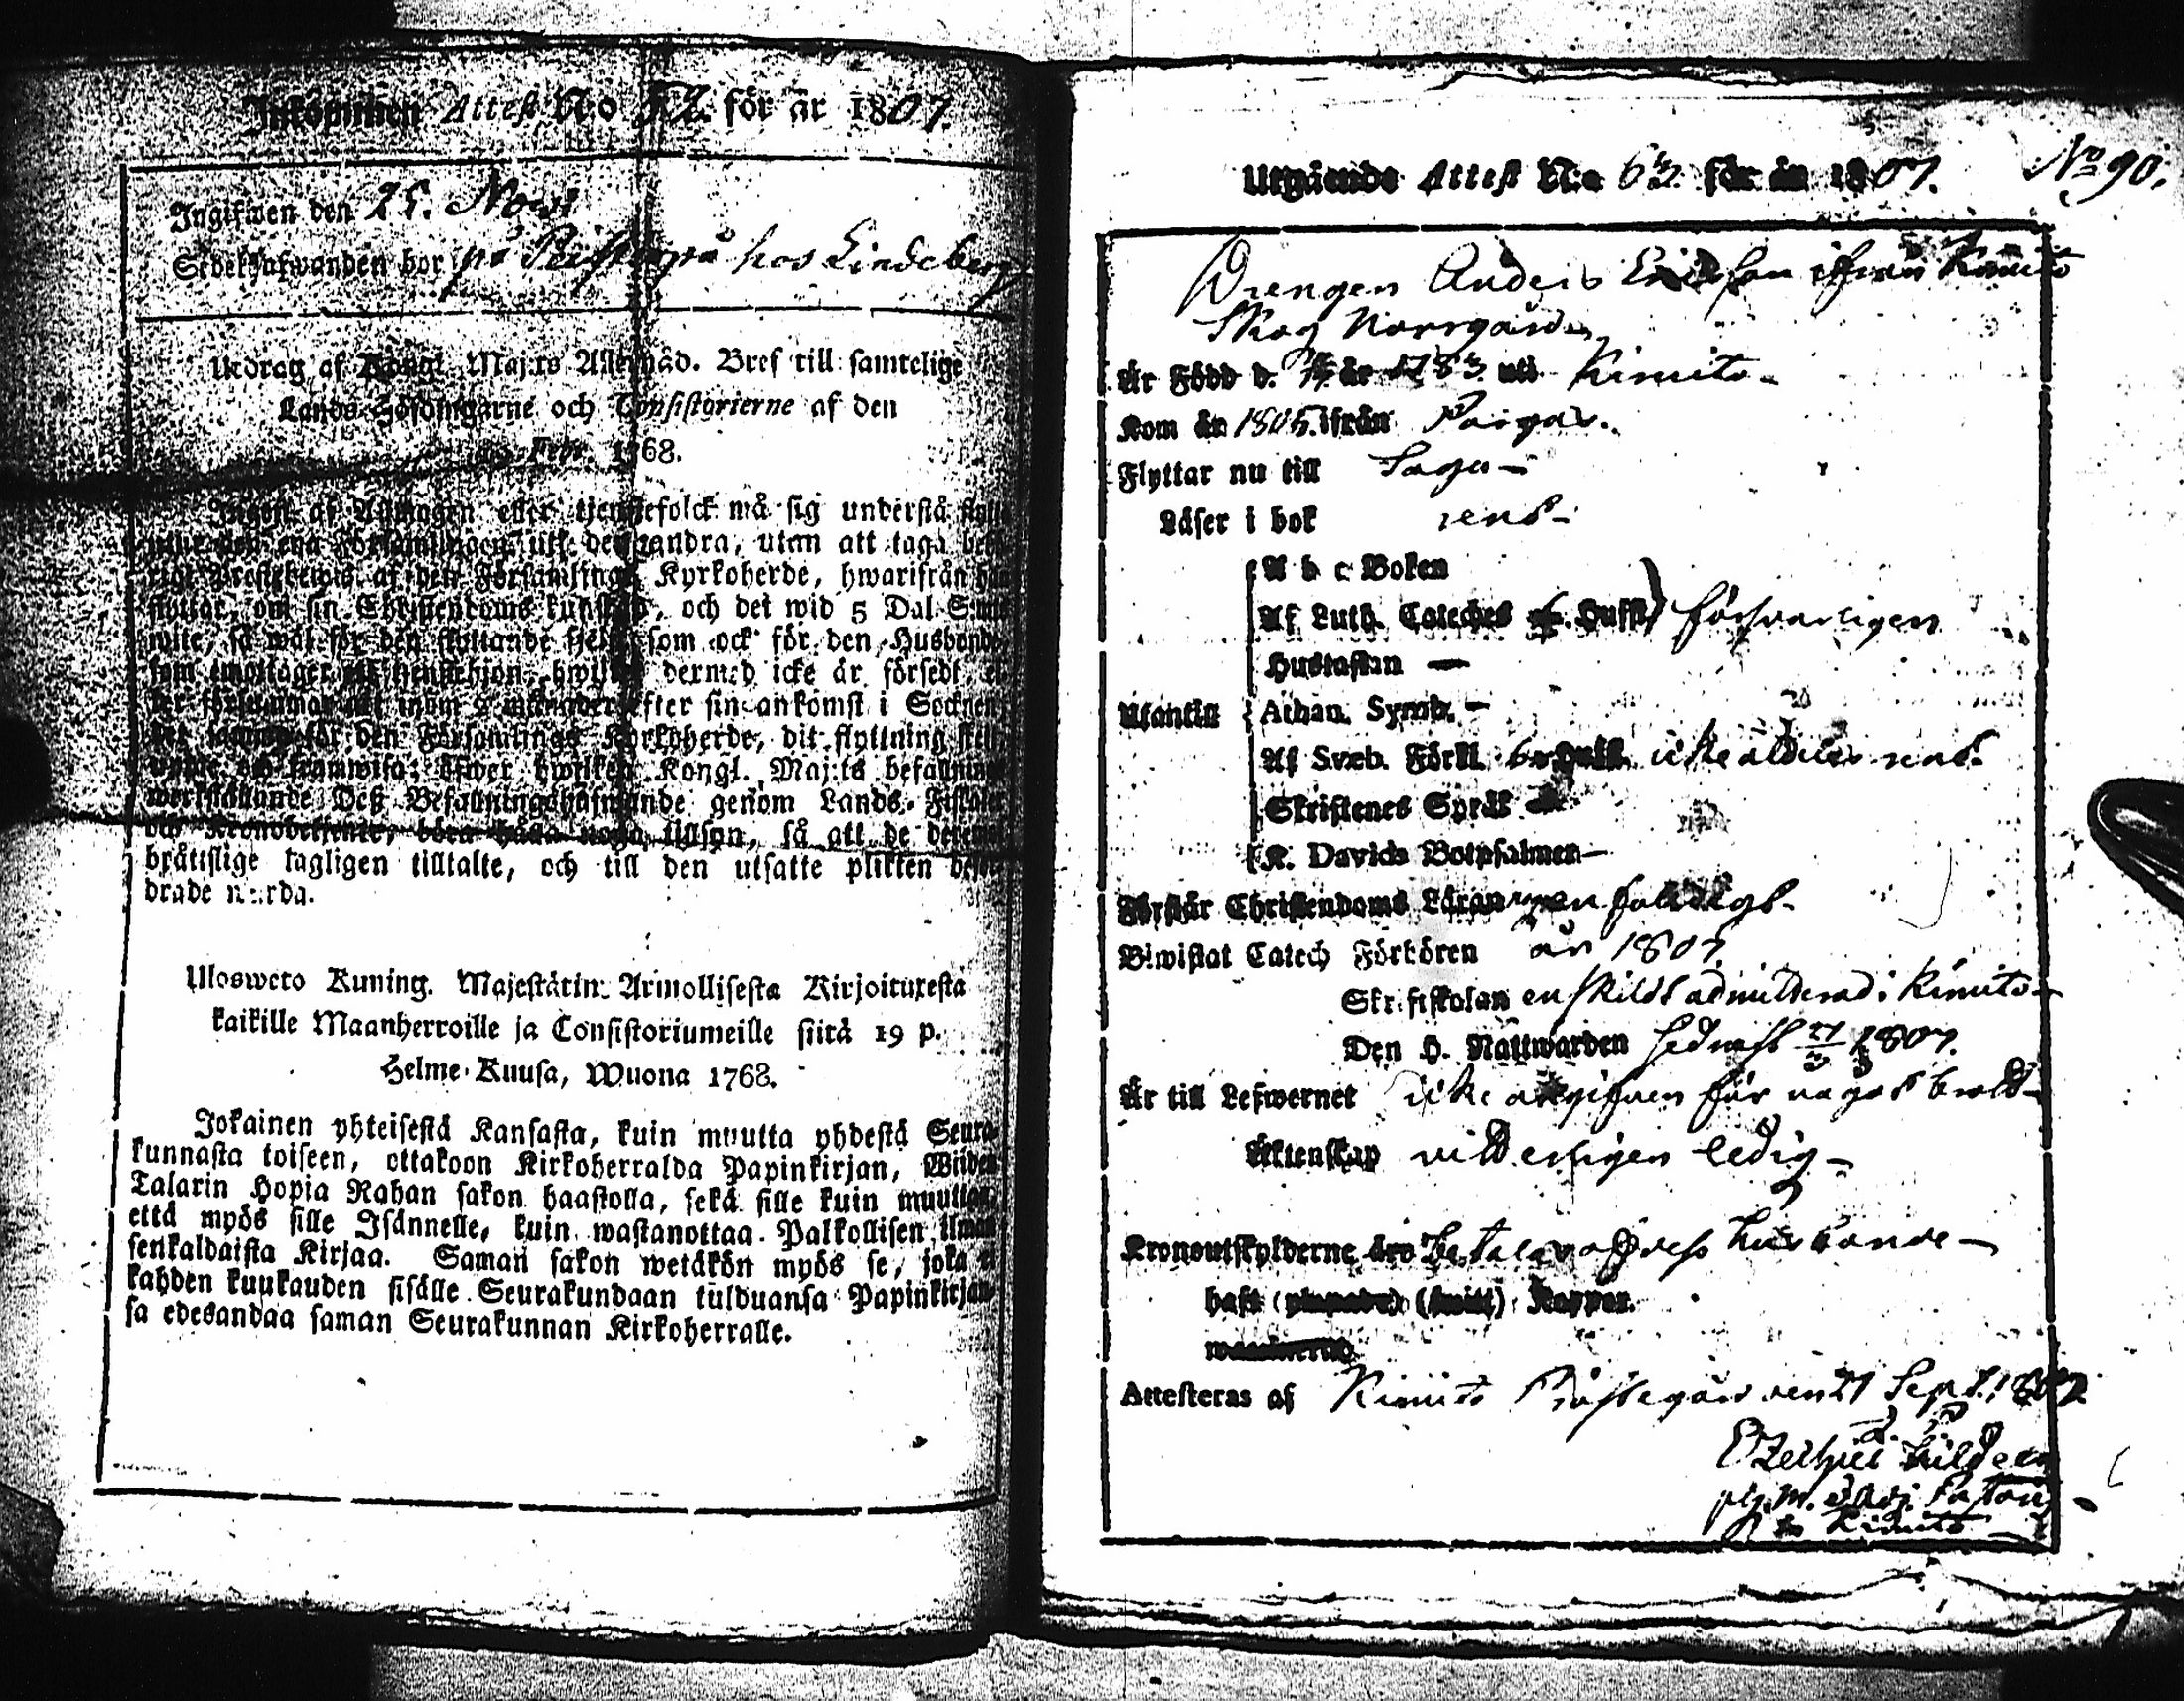 Inkommen Attest No för år 1807.
Ingifwen den 25. Nov:
Sedelhafwanden bor på hos Lindeberg
Utdrag af Kongl. Maj:ts Allernåd. Bref till samtelige
Lands-Höfdingarne och Consistorierne af den
Febr. 1768.
Ingen af Allmogen eller tjenstefolck må sig understå flytta
ifrån den ena Församlingen uti den andra, utan att taga
Prestebewis af den Församlings Kyrkoherde, hwarifrån han
flyttar, om sin Christendoms kunskap, och det wid 5 Dal. S:mts
wite, så wäl för den flyttande sjelf, som ock för den Husbonde
som emottager ett tjenstehjon, hwilket dermed icke är försedt,
ler försummar att inom 2 månader efter sin ankomst i Socknen
det samma för den Församlings Kyrkoherde, dit flyttning sker
uppte och framwisa; öfwer hwilken Kongl. Maj:ts befallning
werkställande Deß Befallningshafwande genom Lands-Fiskaler
och Kronobetjente, böra hålla noga tillsyn, så att de deremot
bråttslige tagligen tilltalte, och till den utsatte plikten befor-
drade warda.
Ulosweto Kuning. Majestätin: Armollisesta Kirjoituxesta
kaikille Maanherroille ja Consistoriumeille siitä 19 p.
Helme-Kuusa, Wuona 1768.
Jokainen yhteisestä Kansasta, kuin muutta yhdestä Seura-
kunnasta toiseen, ottakoon Kirkoherralda Papinkirjan, Wiiden
Talarin Hopia Rahan sakon haastolla, sekä sille kuin muuttaa,
että myös sille Isännelle, kuin wastanottaa Palkollisen, ilman
senkaldaista Kirjaa. Saman sakon wetäkön myös se, joka ei
kahden kuukauden sisälle Seurakundaan tulduansa Papinkirjan-
sa edesandaa saman Seurakunnan Kirkoherralle.
Utgående Attest N:o 63. för år 1807. No 90.
Drengen Anders Ericsson ifrån Kimito
Skog Norrgård.
Är Född d. år 1783. uti Kimito.
Kom år 1805. ifrån Pargas.
Flyttar nu till Sagu
Läser i bok rent
A b c Boken
Af Luth. Cateches o. Hust. försvarligen
Hustaflan
Utantill Athan. Symb.
Af Sveb. Förkl. icke aldeles rent.
Skriftenes Språk
K. Davids Botpsalmer
Förstår Christendoms Läran enfaldigt.
Biwistat Catech Förhören år 1807.
Skriftskolan enskildt admitterad i Kimito
Den H. Nattwarden sednast 27/3 1807.
Är till Lefwernet icke angifven för något brott
Äktenskap vitterligen ledig
Kronoutskylderne äro betalas af dess husbonde
haft Koppor.
Attesteras af Kimito Prästegård den 21 Sept. 1807.
Ezechiel Hildeen